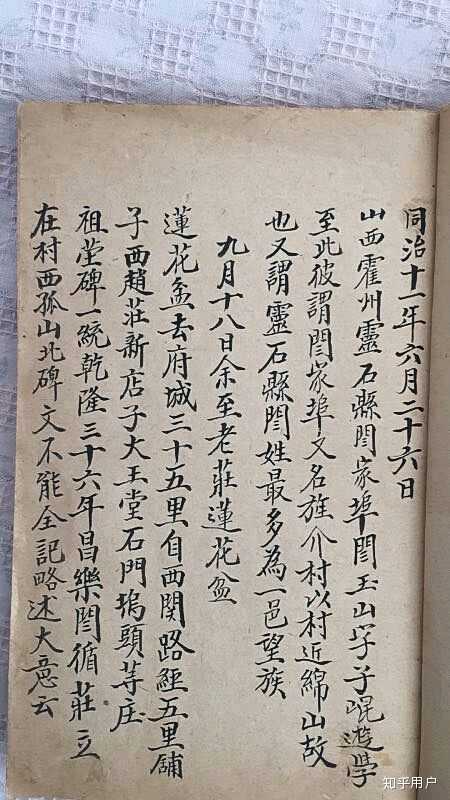 同治十一年六月二十六日
山西霍州靈石縣閆家埠閆玉山字子崐遊學
至此彼謂閆家埠又名旌介村以村近綿山故
也又謂靈石縣閆姓最多為一邑望族
九月十八日余至老莊蓮花盆
蓮花盆去府城三十五里自西関路經五里舖
子西趙莊新店子大王堂石門塢頭等庄
祖塋碑一統乾隆三十六年昌樂閆循莊立
在村西孤山北碑文不能全記略述大意云
知乎用户